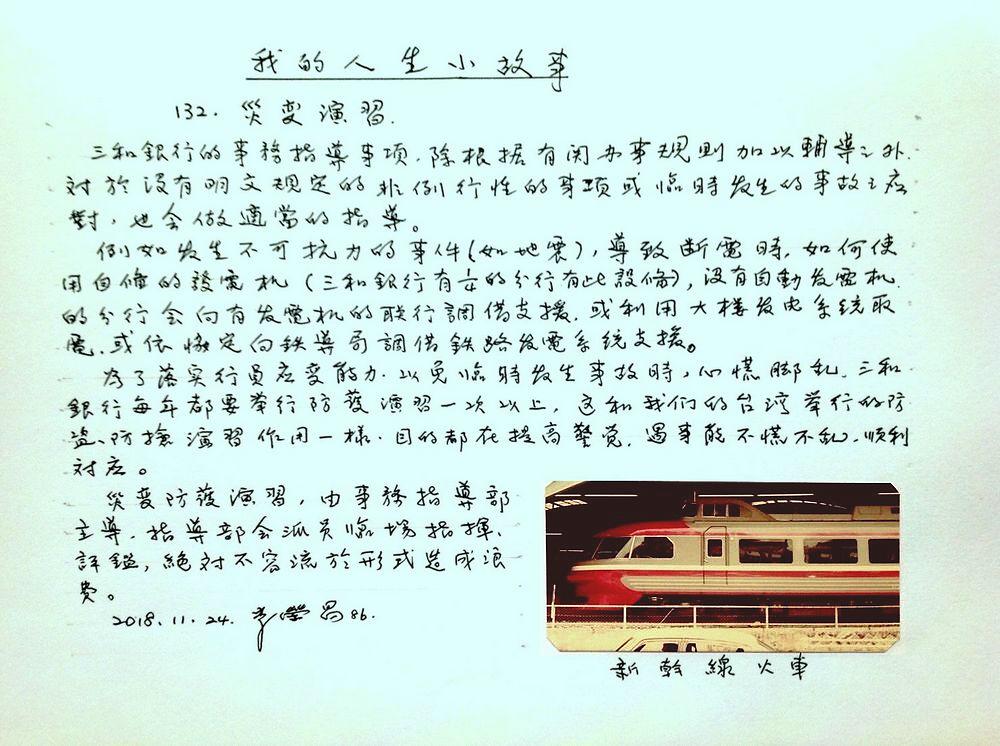 我的人生小故事
132. 災变演習.
三和銀行的事務指導事項.除根据有関办事規則加以輔導之外.
对於没有明文規定的非例行性的事項或臨時发生的事故之应
對,也会做適當的指導。
例如发生不可抗力的事件(如地震),導致断電時.如何使
用自備的發電机(三和銀行有些的分行有此設備),没有自動发電机
的分行会向有发電机的联行調借支援.或利用大楼发电系統取
電.或依協定向鉄導局調借鉄路发電系統支援。
為了落实行員应变能力.以免臨時发生事故時,心慌脚乱.三和
銀行每年都要举行防護演習一次以上,這和我们的台湾举行的防
盗、防搶演習作用一樣.目的都在提高警覚.遇事能不慌不乱.順利
対应。
災变防護演習,由事務指導部
主導.指導部会派員臨場指揮、
評鑑,絶対不容流於形式造成浪
費。
2018.11.24. 榮昌86.
新幹線火車